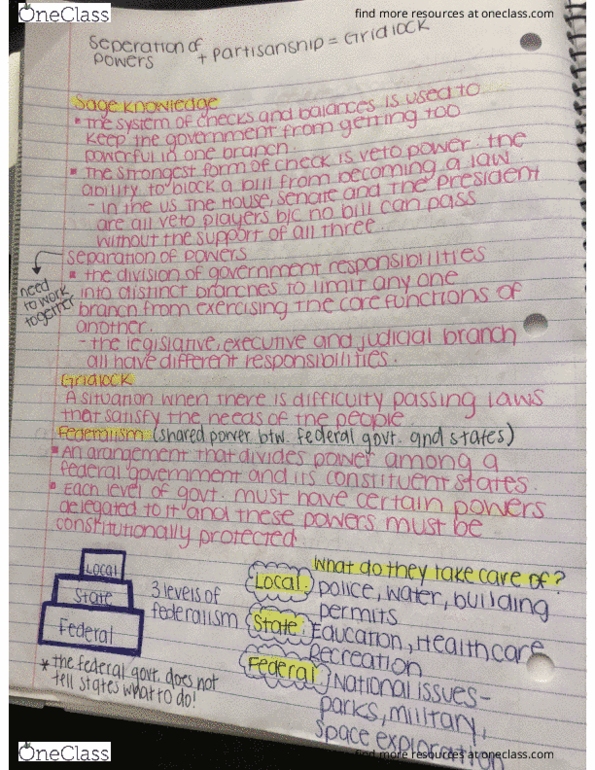 OneClass
find more resources at oneclass.com
Seperation of
powers + partisanship = Gridlock
Sage Knowledge
• the system of checks and balances is used to
keep the government from getting too
powerful in one branch.
• the strongest form of check is veto power: the
ability to block a bill from becoming a law
- in the US the House, Senate and the President
are all veto players b/c no bill can pass
without the support of all three.
Separation of powers
need
to work
together
• the division of government responsibilities
into distinct branches to limit any one
branch from exercising the core functions of
another.
- the legislative, executive and judicial branch
all have different responsibilities.
Gridlock
A situation when there is difficulty passing laws
that satisfy the needs of the people
Federalism (shared power btw. federal govt. and states)
• An arangement that divides power among a
federal government and its constituent states.
• Each level of govt. must have certain powers
delegated to it and these powers must be
constitutionally protected.
Local
State
Federal
3 levels of
federalism
* the federal govt. does not
tell states what to do!
What do they take care of?
Local: police, water, building
permits
State: Education, Healthcare
Recreation
Federal: National issues-
parks, military,
space exploration
OneClass
find more resources at oneclass.com